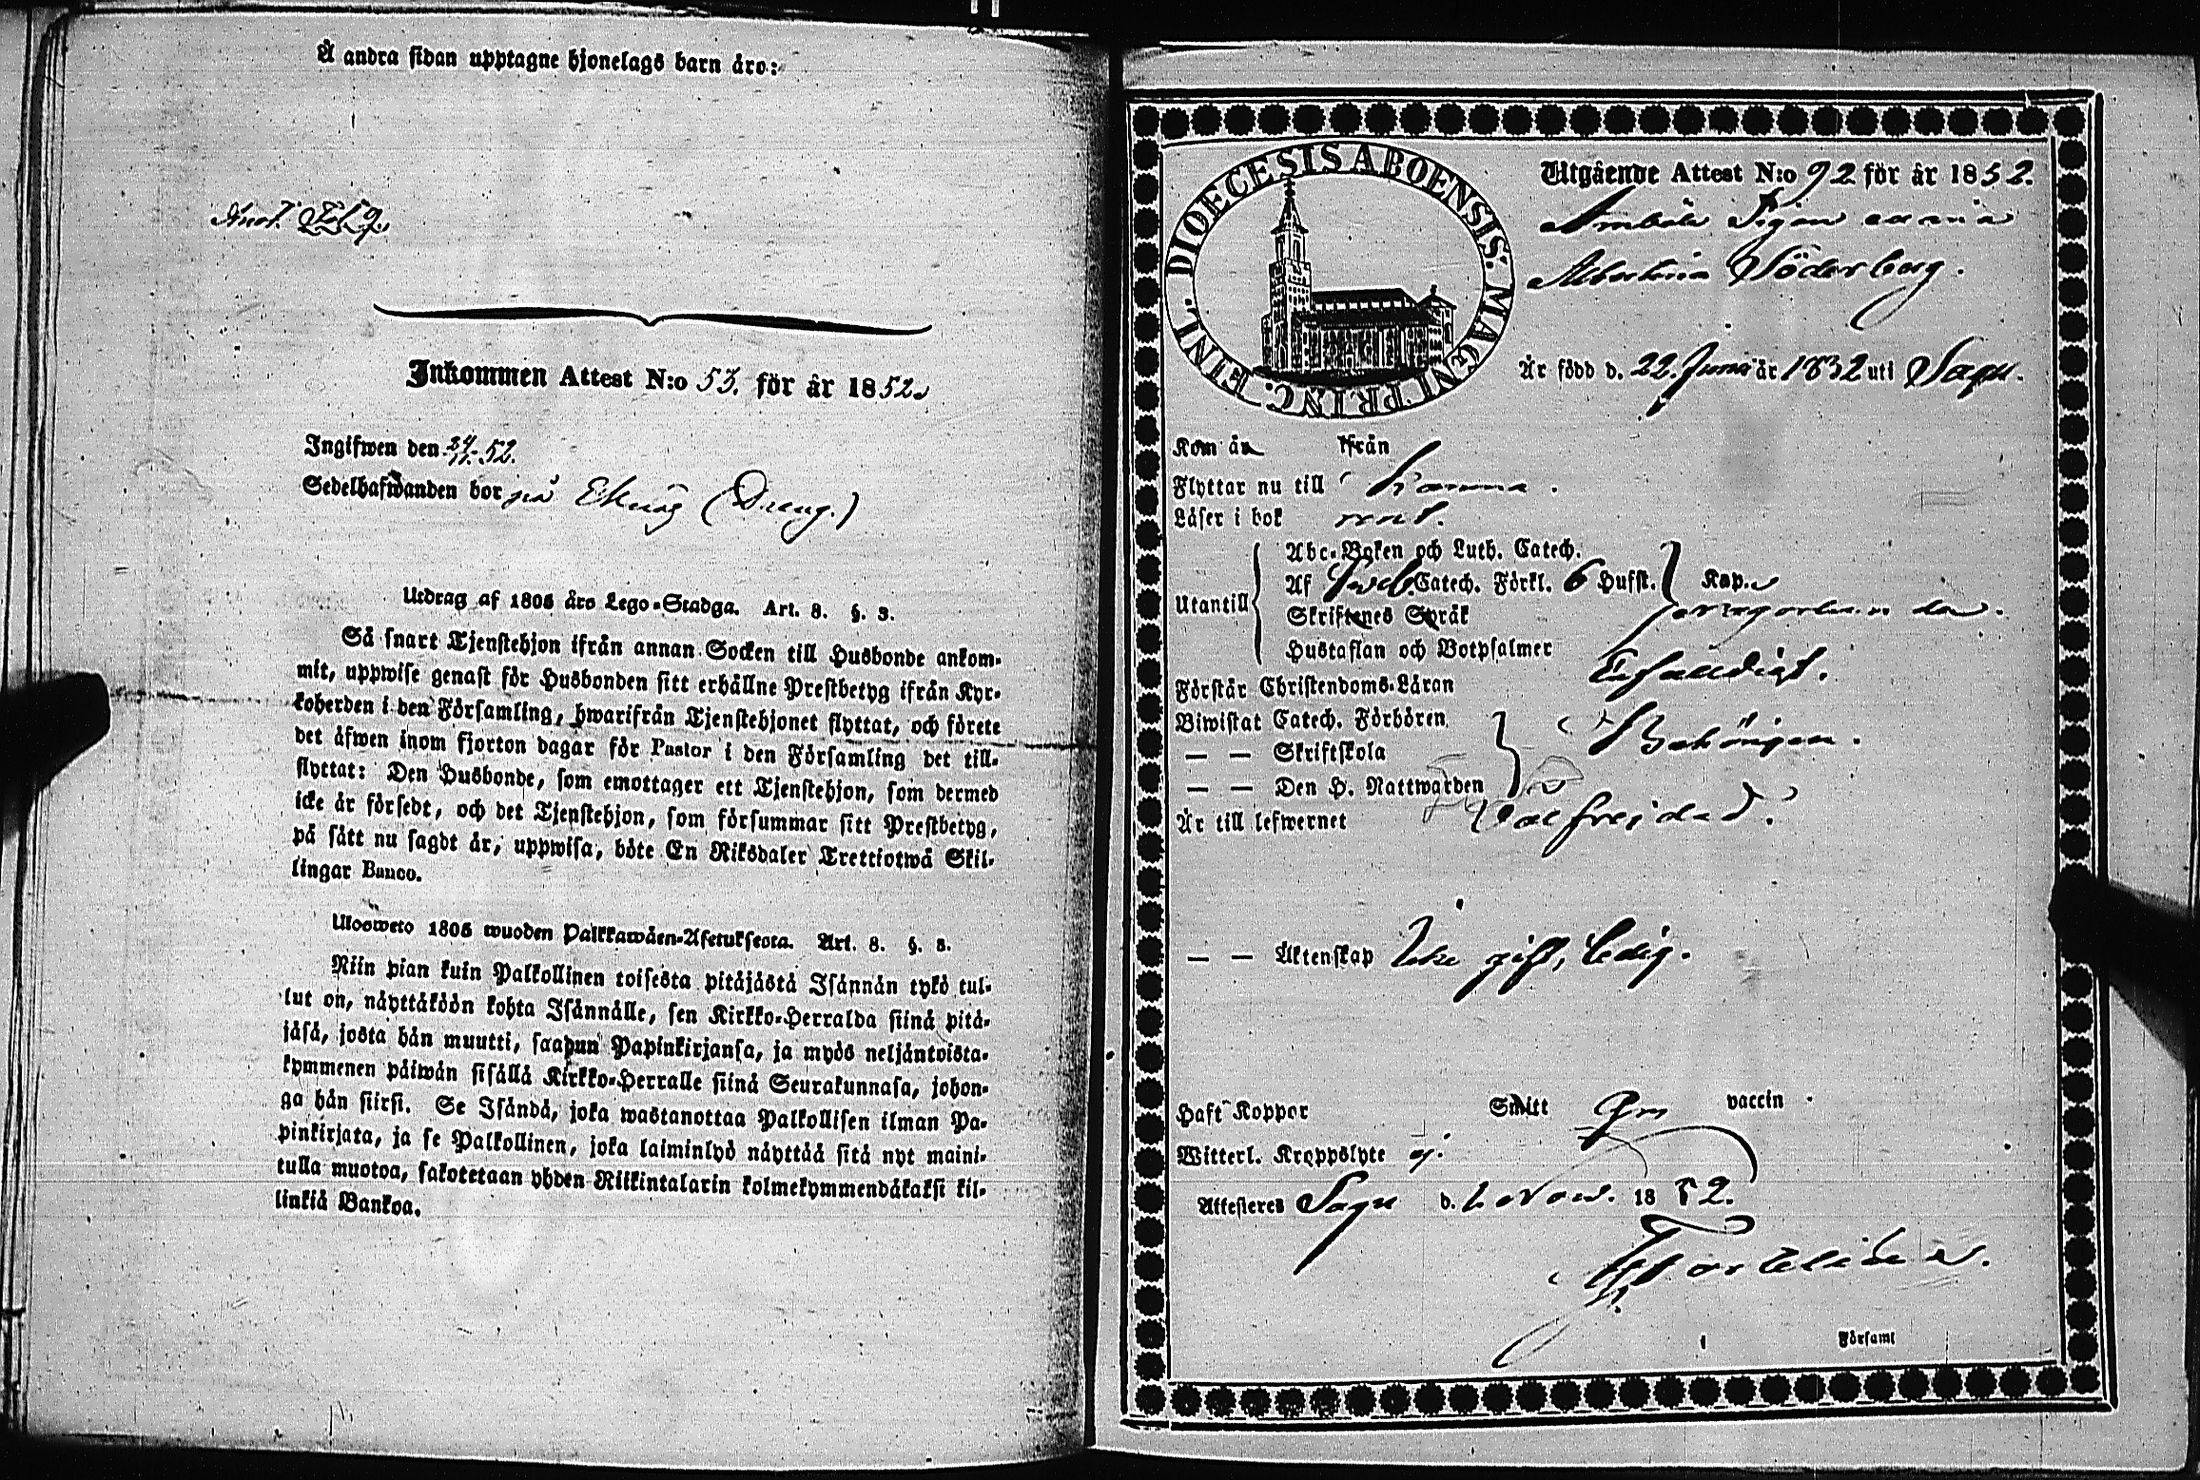 Å andra sidan upptagne hjonelags barn äro:
Inkommen Attest N:o 53. för år 1852.
Ingifwen den 24/11. 52.
Sedelhafwanden bor på (Dreng.)
Utdrag af 1805 års Lego-Stadga. Art. 8. §. 3.
Så snart Tjenstehjon ifrån annan Socken till Husbonde ankom-
mit, uppwise genast för Husbonden sitt erhållne Prestbetyg ifrån Kyr-
koherden i den Församling, hwarifrån Tjenstehjonet flyttat, och förete
det äfwen inom fjorton dagar för Pastor i den Församling det till-
flyttat: Den Husbonde, som emottager ett Tjenstehjon, som dermed
icke är försedt, och det Tjenstehjon, som försummar sitt Prestbetyg,
på sätt nu sagdt är, uppwisa, böte En Riksdaler Trettiotwå Skil-
lingar Banco.
Ulosweto 1805 wuoden Palkkawäen-Asetuksesta. Art. 8. §. 3.
Niin pian kuin Palkollinen toisesta pitäjästä Isännän tykö tul-
lut on, näyttäköön kohta Isännälle, sen Kirkko-Herralda siinä pitä-
jäsä, josta hän muutti, saapun Papinkirjansa, ja myös neljäntoista-
kymmenen päiwän sisällä Kirkko-Herralle siinä Seurakunnasa, johon-
ga hän siirsi. Se Isändä, joka wastanottaa Palkollisen ilman Pa-
pinkirjata, ja se Palkollinen, joka laiminlyö näyttää sitä nyt maini-
tulla muotoa, sakotetaan yhden Riikintalarin kolmekymmendäkaksi kil-
linkiä Bankoa.
DIOECESIS ABOENSIS. MAGNI PRINC. FINL.
Utgående Attest N:o 92 för år 1852.
Pigan
Albertina Söderberg.
Är född d. 22 Junii år 1832 uti Sagu.
Kom år ifrån
Flyttar nu till
Läser i bok rent.
Utantill
Abc-Boken och Luth. Catech.
Af Sveb. Catech. Förkl. 6 Hufst. Kap.
Skriftenes Språk
Hustaflan och Botpsalmer
Förstår Christendoms-Läran
Biwistat Catech. Förhören
— — Skriftskola
Behörigen.
— — Den H. Nattwarden
Är till lefwernet Välfrejdad.
— — Äktenskap Icke gift, ledig.
Haft Koppor Smitt vaccin
Witterl. Kroppslyte ej.
Attesteres Sagu d. 1 Nov. 1852.
Församl